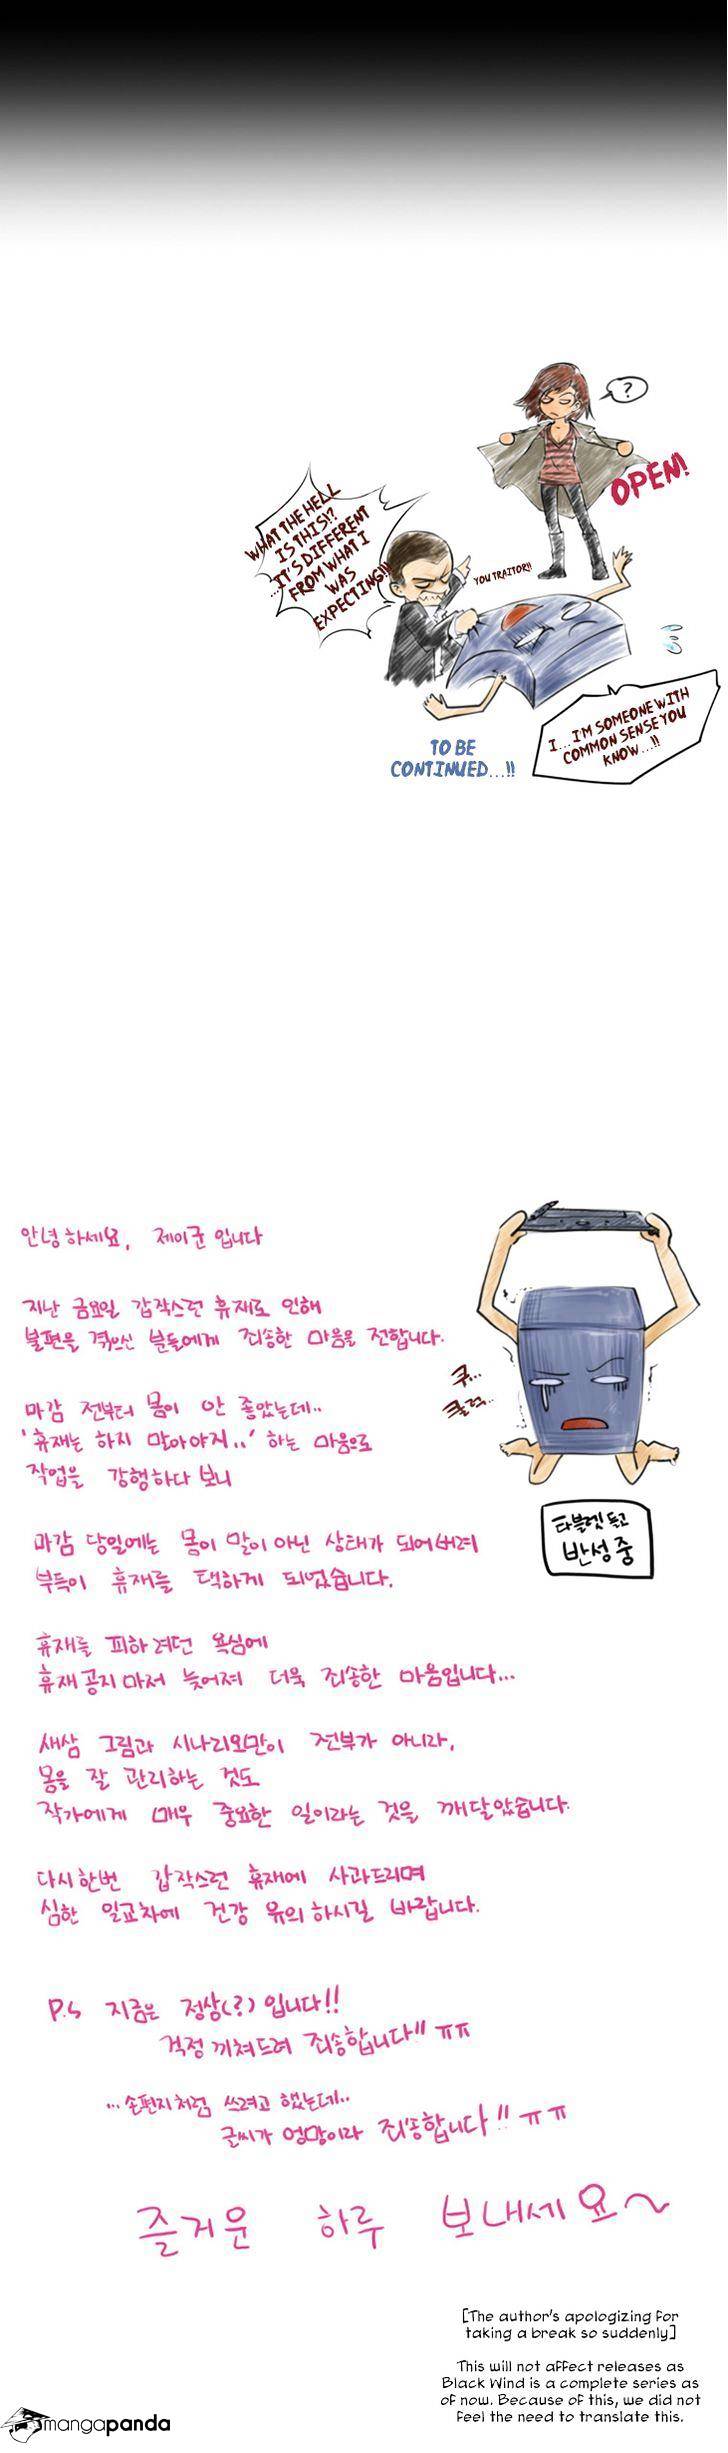 ?
OPEN!
WHAT THE HELL
IS THIS!?
...IT'S DIFFERENT
FROM WHAT I
WAS
EXPECTING!!!
YOU TRAITOR!!
I...I'M SOMEONE WITH
COMMON SENSE YOU
KNOW...!!
TO BE
CONTINUED...!!
안녕하세요, 제이군입니다
지난 금요일 갑작스런 휴재로 인해
불편을 겪으신 분들에게 죄송한 마음을 전합니다.
마감 전부터 몸이 안 좋았는데..
'휴재는 하지 말아야지..' 하는 마음으로
작업을 강행하다 보니
쿠...
쿨럭...
타블렛 들고
반성중
마감 당일에는 몸이 말이 아닌 상태가 되어버려
부득이 휴재를 택하게 되었습니다.
휴재를 피하려던 욕심에
휴재공지마저 늦어져 더욱 죄송한 마음입니다...
새삼 그림과 시나리오만이 전부가 아니라,
몸을 잘 관리하는 것도
작가에게 매우 중요한 일이라는 것을 깨달았습니다.
다시한번 갑작스런 휴재에 사과드리며
심한 일교차에 건강 유의하시길 바랍니다.
P.S 지금은 정상(?)입니다!!
걱정 끼쳐드려 죄송합니다!! ㅠㅠ
...손편지처럼 쓰려고 했는데..
글씨가 엉망이라 죄송합니다!! ㅠㅠ
즐거운 하루 보내세요~
[The author's apologizing for
taking a break so suddenly]
This will not affect releases as
Black Wind is a complete series as
of now. Because of this, we did not
feel the need to translate this.
mangapanda